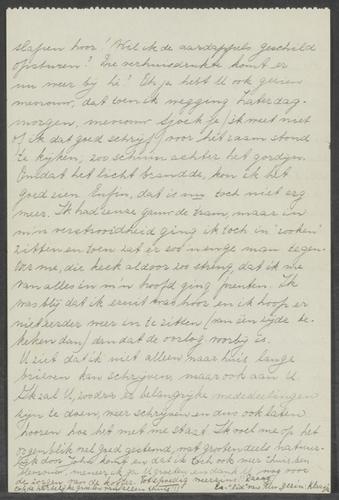 slapen hoor! Wil ik de aardappels geschild
opsturen? Die verhuisdrukte komt er
nu meer bij hè! En ja hebt U ook gezien
mevrouw, dat toen ik wegging Zaterdag-
morgen, mevrouw Sjoek je (ik weet niet
of ik dat goed schrijf) voor het raam stond
te kijken, zoo schuin achter het gordijn.
Omdat het licht brandde, kon ik het
goed zien. Enfin, dat is nu toch niet erg
meer. Ik had reuze gauw de tram, maar in
m'n verstrooidheid ging ik toch in "rooken"
zitten en toen zat er zoo'n enge man tegen-
over me, die keek al door zoo streng, dat ik me
van alles in m'n hoofd ging prenten. Ik
was blij dat ik eruit was hoor en ik hoop er
niet eerder meer in te zitten (van één zijde be-
keken dan) dan dat de oorlog voorbij is.
U ziet dat ik niet alleen naar huis lange
brieven kan schrijven, maar ook aan U.
Ik zal U, zoodra er belangrijke mededeelingen
zijn te doen, meer schrijven en dus ook laten
hooren hoe het met me staat. Ik voel me op het
oogenblik nel goed gestemd, wat grootendeels natuur-
lijk door John komt en dat ik toch ook weer thuis ben.
Mevrouw, meneer, ik ga U groeten en dank U nog voor
de zorgen van de koffer. Tot spoedig weerziens! Daag